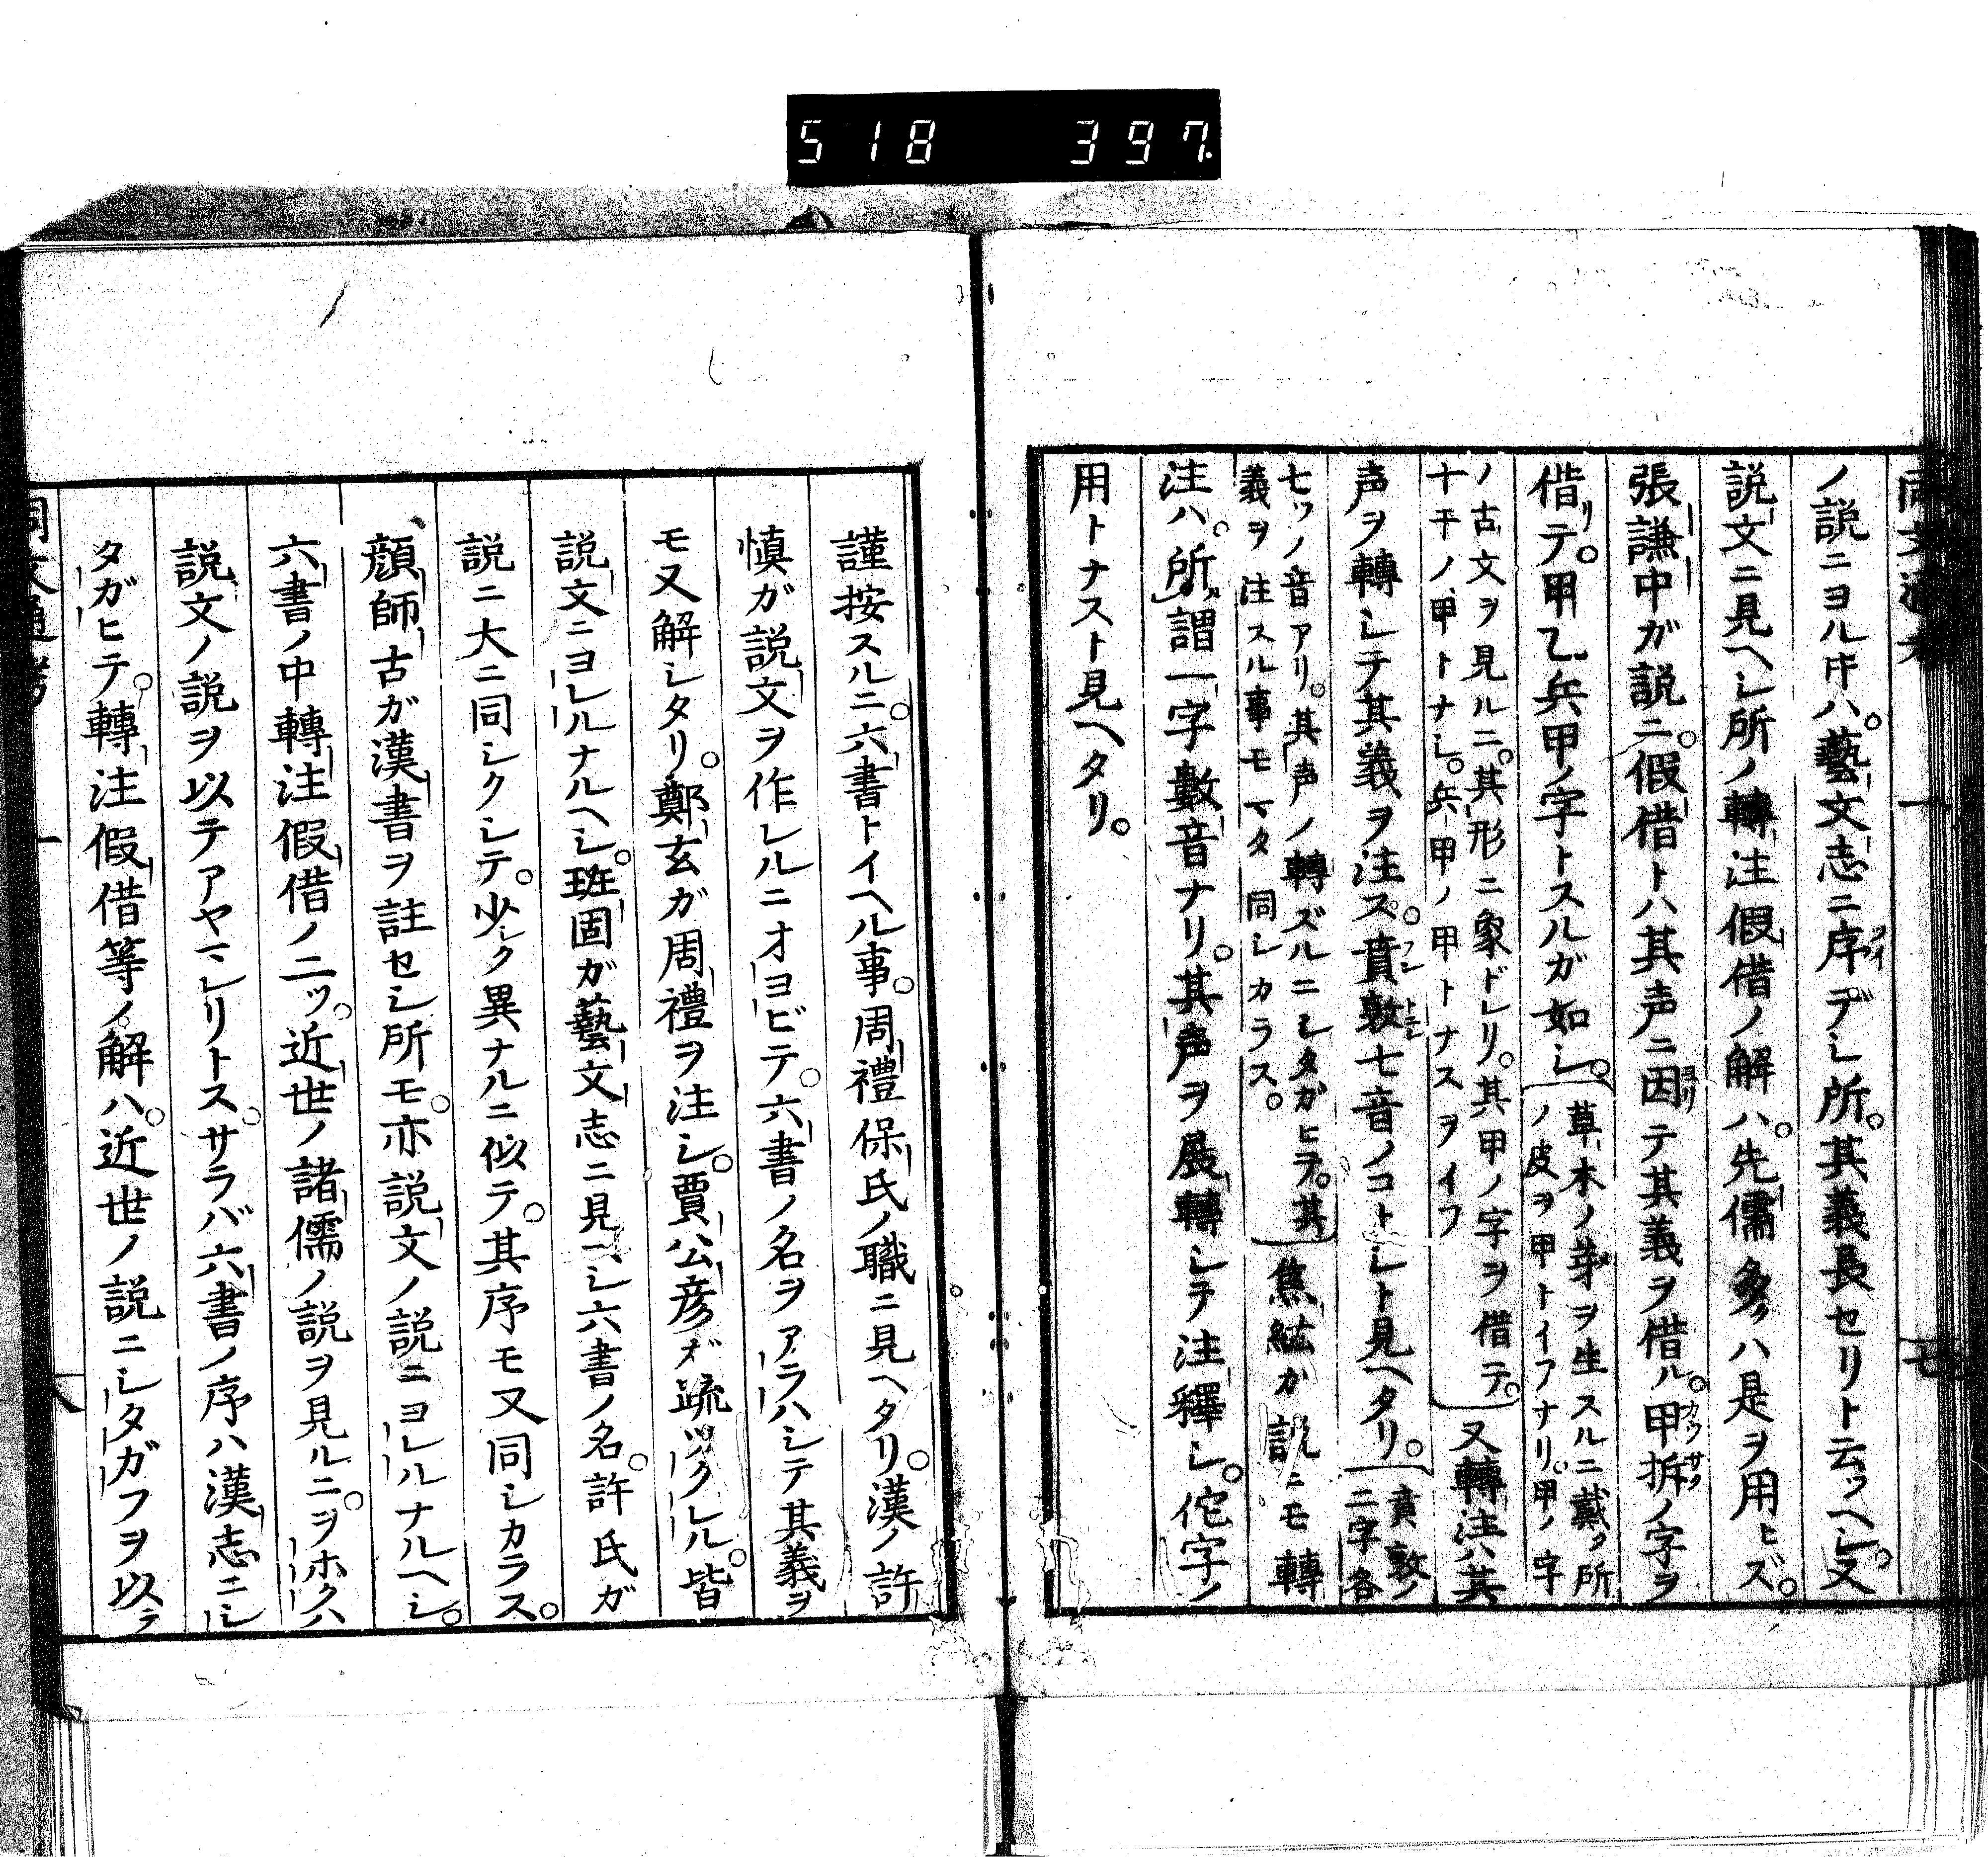 518 397
ノ説ニヨル片ハ。藝文志ニ序デシ所。其義長セリト云ツヘシ。又
説文ニ見ヘシ所ノ轉注假借ノ解ハ。先儒多クハ是ヲ用ヒズ。
張謙中ガ説ニ。假借トハ其声ニ因テ其義ヲ借ル。甲拆ノ字ヲ
借リテ。甲乙兵甲ノ字トスルガ如シ。
草木ノ芽ヲ生スルニ戴ク所
ノ皮ヲ甲トイフナリ。甲ノ字
ノ古文ヲ見ルニ。其形ニ象ドレリ。其甲ノ字ヲ借テ。
十干ノ甲トナシ。兵甲ノ甲トナスヲイフ
又轉注ハ其
声ヲ轉シテ其義ヲ注ス。賁敦七音ノコトシト見ヘタリ。
賁敦ノ
二字各
七ツノ音アリ。其声ノ轉ズルニシタガヒテ。其
義ヲ注スル事モマタ同シカラス。
焦竑か説ニモ轉
注ハ。所謂一字數音ナリ。其声ヲ展轉シテ注釋シ。佗字ノ
用トナスト見ヘタリ。
謹按スルニ。六書トイヘル事。周禮保氏ノ職ニ見ヘタリ。漢ノ許
慎ガ説文ヲ作レルニオヨビテ。六書ノ名ヲアラハシテ其義ヲ
モ又解シタリ。鄭玄ガ周禮ヲ注シ。賈公彦ガ疏ツクレル。皆
説文ニヨレルナルヘシ。班固ガ藝文志ニ見ヘシ六書ノ名。許氏ガ
説ニ大ニ同シクシテ。少シク異ナルニ似テ。其序モ又同シカラス。
顔師古ガ漢書ヲ註セシ所モ。亦説文ノ説ニヨレルナルヘシ。
六書ノ中轉注假借ノ二ツ。近世ノ諸儒ノ説ヲ見ルニ。ヲホクハ
説文ノ説ヲ以テアヤマレリトス。サラバ六書ノ序ハ漢志ニシ
タガヒテ。轉注假借等ノ解ハ。近世ノ説ニシタガフヲ以テ